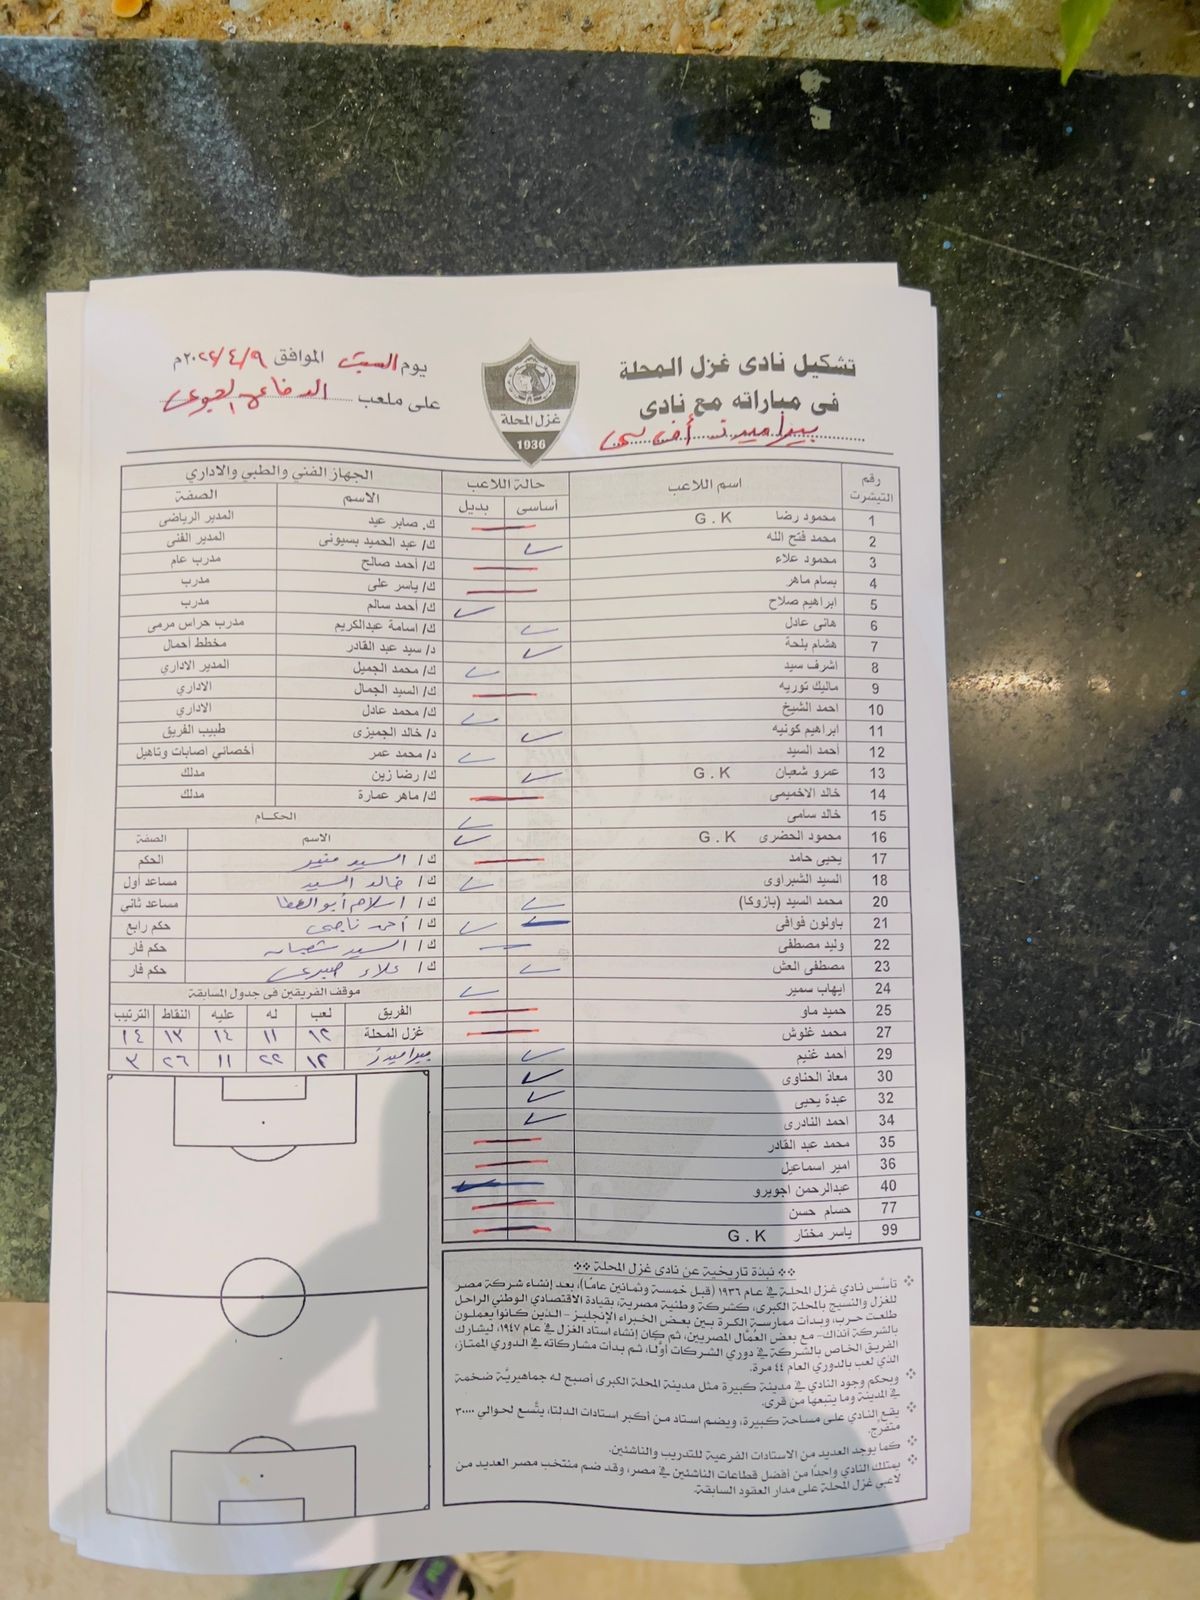 تشكيل نادى غزل المحلة
فى مباراته مع نادى
بيراميدز أف سى
غزل المحلة
1936
يوم السبت الموافق ٢٠٢٢/٤/٩م
على ملعب الدفاع الجوى
رقم التيشرت اسم اللاعب حالة اللاعب
أساسى بديل
1 محمود رضا G . K
2 محمد فتح الله
3 محمود علاء
4 بسام ماهر
5 ابراهيم صلاح
6 هانى عادل
7 هشام بلحة
8 اشرف سيد
9 ماليك توريه
10 احمد الشيخ
11 ابراهيم كونيه
12 أحمد السيد
13 عمرو شعبان G . K
14 خالد الاخميمى
15 خالد سامى
16 محمود الحضرى G . K
17 يحيى حامد
18 السيد الشبراوى
20 محمد السيد (بازوكا)
21 باولون فوافى
22 وليد مصطفى
23 مصطفى العش
24 ايهاب سمير
25 حميد ماو
27 محمد غلوش
29 أحمد غنيم
30 معاذ الحناوى
32 عبدة يحيى
34 احمد النادرى
35 محمد عبد القادر
36 امير اسماعيل
40 عبدالرحمن اجويرو
77 حسام حسن
99 ياسر مختار G . K
الجهاز الفني والطبي والاداري
الاسم الصفة
ك. صابر عيد المدير الرياضى
ك/ عبد الحميد بسيونى المدير الفنى
ك/ أحمد صالح مدرب عام
ك/ ياسر على مدرب
ك/ أحمد سالم مدرب
ك/ اسامة عبدالكريم مدرب حراس مرمى
د/ سيد عبد القادر مخطط أحمال
ك/ محمد الجميل المدير الاداري
ك/ السيد الجمال الاداري
ك/ محمد عادل الاداري
د/ خالد الجميزى طبيب الفريق
د/ محمد عمر أخصائي اصابات وتاهيل
ك/ رضا زين مدلك
ك/ ماهر عمارة مدلك
الحكــام
الاسم الصفة
ك / السيد منير الحكم
ك / خالد السيد مساعد اول
ك / اسلام أبو العطا مساعد ثاني
ك / أحمد ناجى حكم رابع
ك / السيد شعبان حكم فار
ك / علاء صبرى حكم فار
موقف الفريقين فى جدول المسابقة
الفريق لعب له عليه النقاط الترتيب
غزل المحلة ١٢ ١١ ١٤ ١٣ ١٤
بيراميدز ١٢ ٢٢ ١١ ٢٦ ٣
** نبذة تاريخية عن نادى غزل المحلة **
تأسَّس نادي غزل المحلة في عام ١٩٣٦ (قبل خمسة وثمانين عامًا)، بعد إنشاء شركة مصر
للغزل والنسيج بالمحلة الكبرى، كشركة وطنية مصرية، بقيادة الاقتصادي الوطني الراحل
طلعت حرب، وبدأت ممارسة الكرة بين بعض الخبراء الإنجليز - الذين كانوا يعملون
بالشركة آنذاك- مع بعض العُمَّال المصريين، ثم كان إنشاء استاد الغزل في عام ١٩٤٧، ليشارك
الفريق الخاص بالشركة في دوري الشركات أوَّلًا، ثم بدأت مشاركاته في الدوري الممتاز،
الذي لعب بالدوري العام ٤٤ مرة.
وبحكم وجود النادي في مدينة كبيرة مثل مدينة المحلة الكبرى أصبح له جماهيريَّة ضخمة
في المدينة وما يتبعها من قرى.
يقع النادي على مساحة كبيرة، ويضم استاد من أكبر استادات الدلتا، يتَّسع لحوالي ٣٠٠٠٠
متفرِّج.
كما يوجد العديد من الاستادات الفرعية للتدريب والناشئين.
يمتلك النادي واحدًا من أفضل قطاعات الناشئين في مصر، وقد ضم منتخب مصر العديد من
لاعبي غزل المحلة على مدار العقود السابقة.